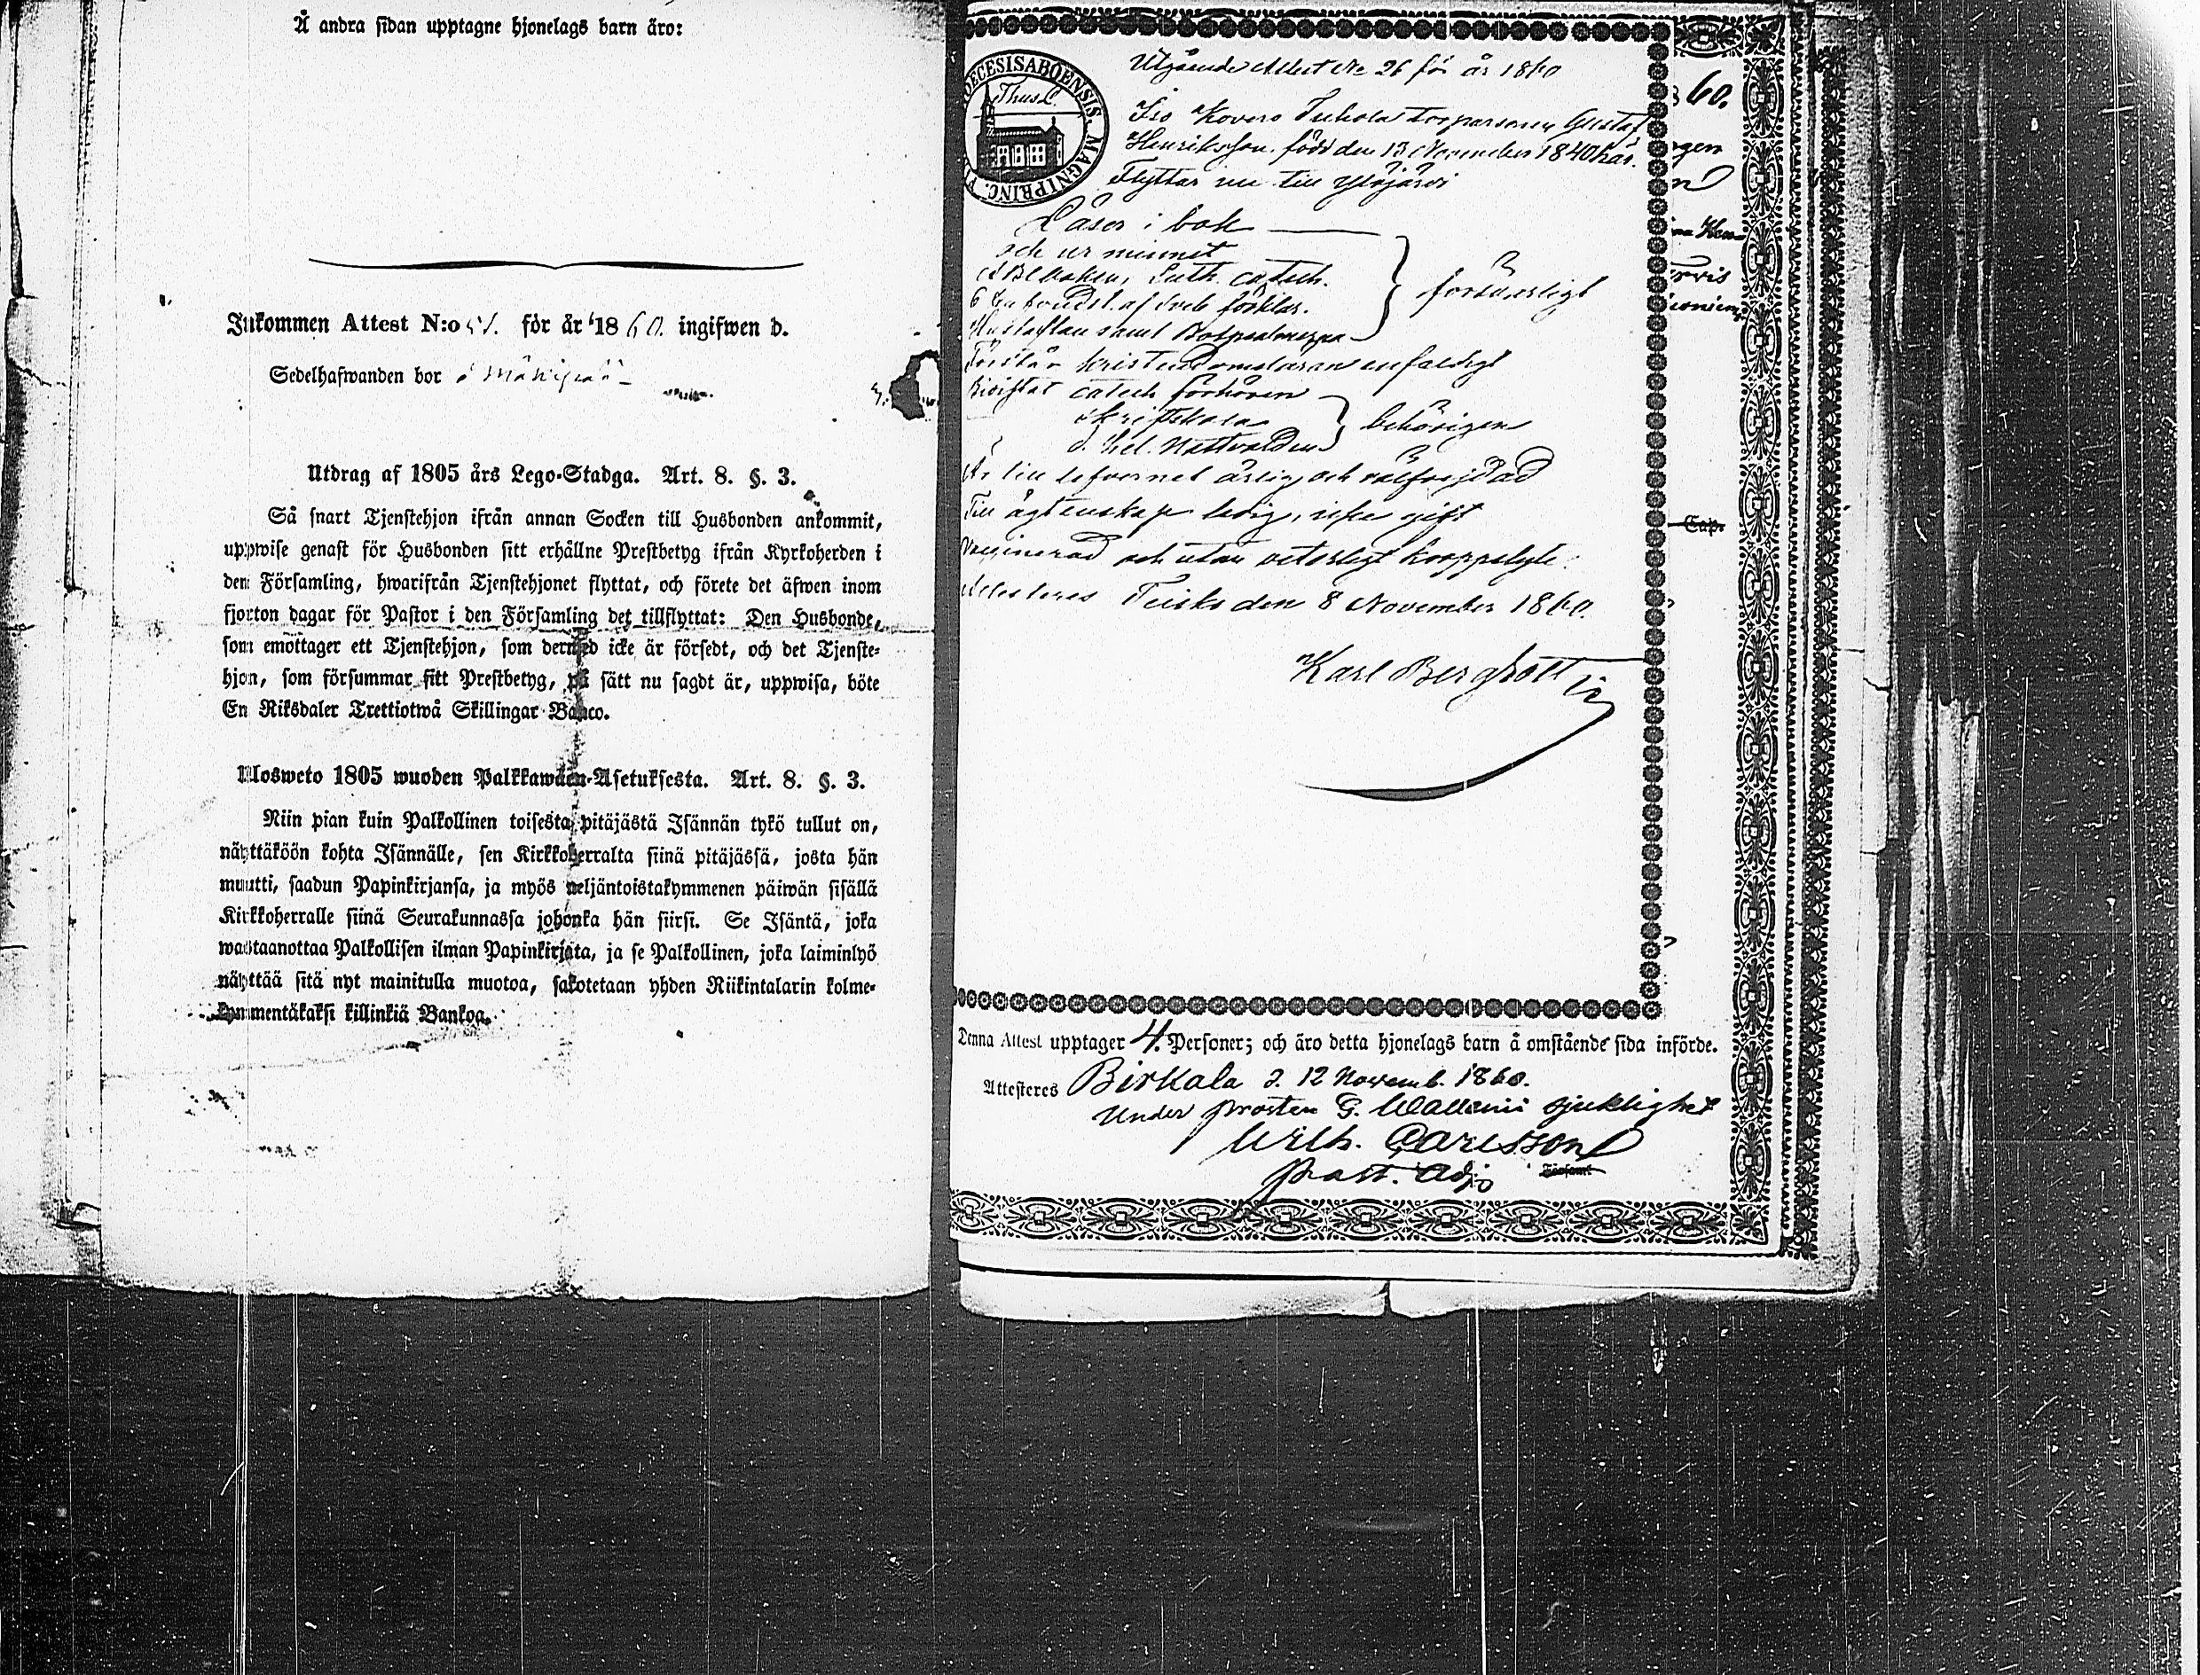 Å andra sidan upptagne hjonelags barn äro:
Inkommen Attest N:o 51. för år 1860. ingifwen d.
Sedelhafwanden bor i
Utdrag af 1805 års Lego-Stadga. Art. 8. §. 3.
Så snart Tjenstehjon ifrån annan Socken till Husbonden ankommit,
uppwise genast för Husbonden sitt erhållne Prestbetyg ifrån Kyrkoherden i
den Församling, hwarifrån Tjenstehjonet flyttat, och förete det äfwen inom
fjorton dagar för Pastor i den Församling det tillflyttat: Den Husbonde,
som emottager ett Tjenstehjon, som dermed icke är försedt, och det Tjenste-
hjon, som försummar sitt Prestbetyg, på sätt nu sagdt är, uppwisa, böte
En Riksdaler Trettiotwå Skillingar Banco.
Ulosweto 1805 wuoden Palkkawäen-Asetuksesta. Art. 8. §. 3.
Niin pian kuin Palkollinen toisesta pitäjästä Isännän tykö tullut on,
näyttäköön kohta Isännälle, sen Kirkkoherralta siinä pitäjässä, josta hän
muutti, saadun Papinkirjansa, ja myös neljäntoistakymmenen päiwän sisällä
Kirkkoherralle siinä Seurakunnassa johonka hän siirsi. Se Isäntä, joka
wastaanottaa Palkollisen ilman Papinkirjata, ja se Palkollinen, joka laiminlyö
näyttää sitä nyt mainitulla muotoa, sakotetaan yhden Riikintalarin kolme-
kymmentäkaksi killinkiä Bankoa.
DIOECESIS ABOENSIS. MAGNI PRINC.
Utgående Attest No 26 för år 1860
Frö Kovero Tuhola torparsonen Gustaf
Henriksson född den 13 November 1840 här.
Flyttar nu till Ylöjärvi
Läser i bok
och ur minnet
ABCboken, Luth. catech.
förklar.
Hustaflan samt Botpsalmerna
försvarligt
Förstår Kristendomsläran enfaldigt
Bivistat catech förhören
skriftskola
d. hel. Nattvarden
behörigen
Är till lefvernet ärlig och välfrejdad
Till ägtenskap ledig, icke gift
Vaccinerad och utan veterligt kroppslyte.
Attesteras Teisko den 8 November 1860.
Karl Bergrott
60.
Cap.
Denna Attest upptager 4. Personer; och äro detta hjonelags barn å omstående sida införde.
Attesteres Birkala d. 12 Novemb. 1860.
Under prosten G. Wallenii sjuklighet
Wilh. Carlsson
past. Adj.
Församl.